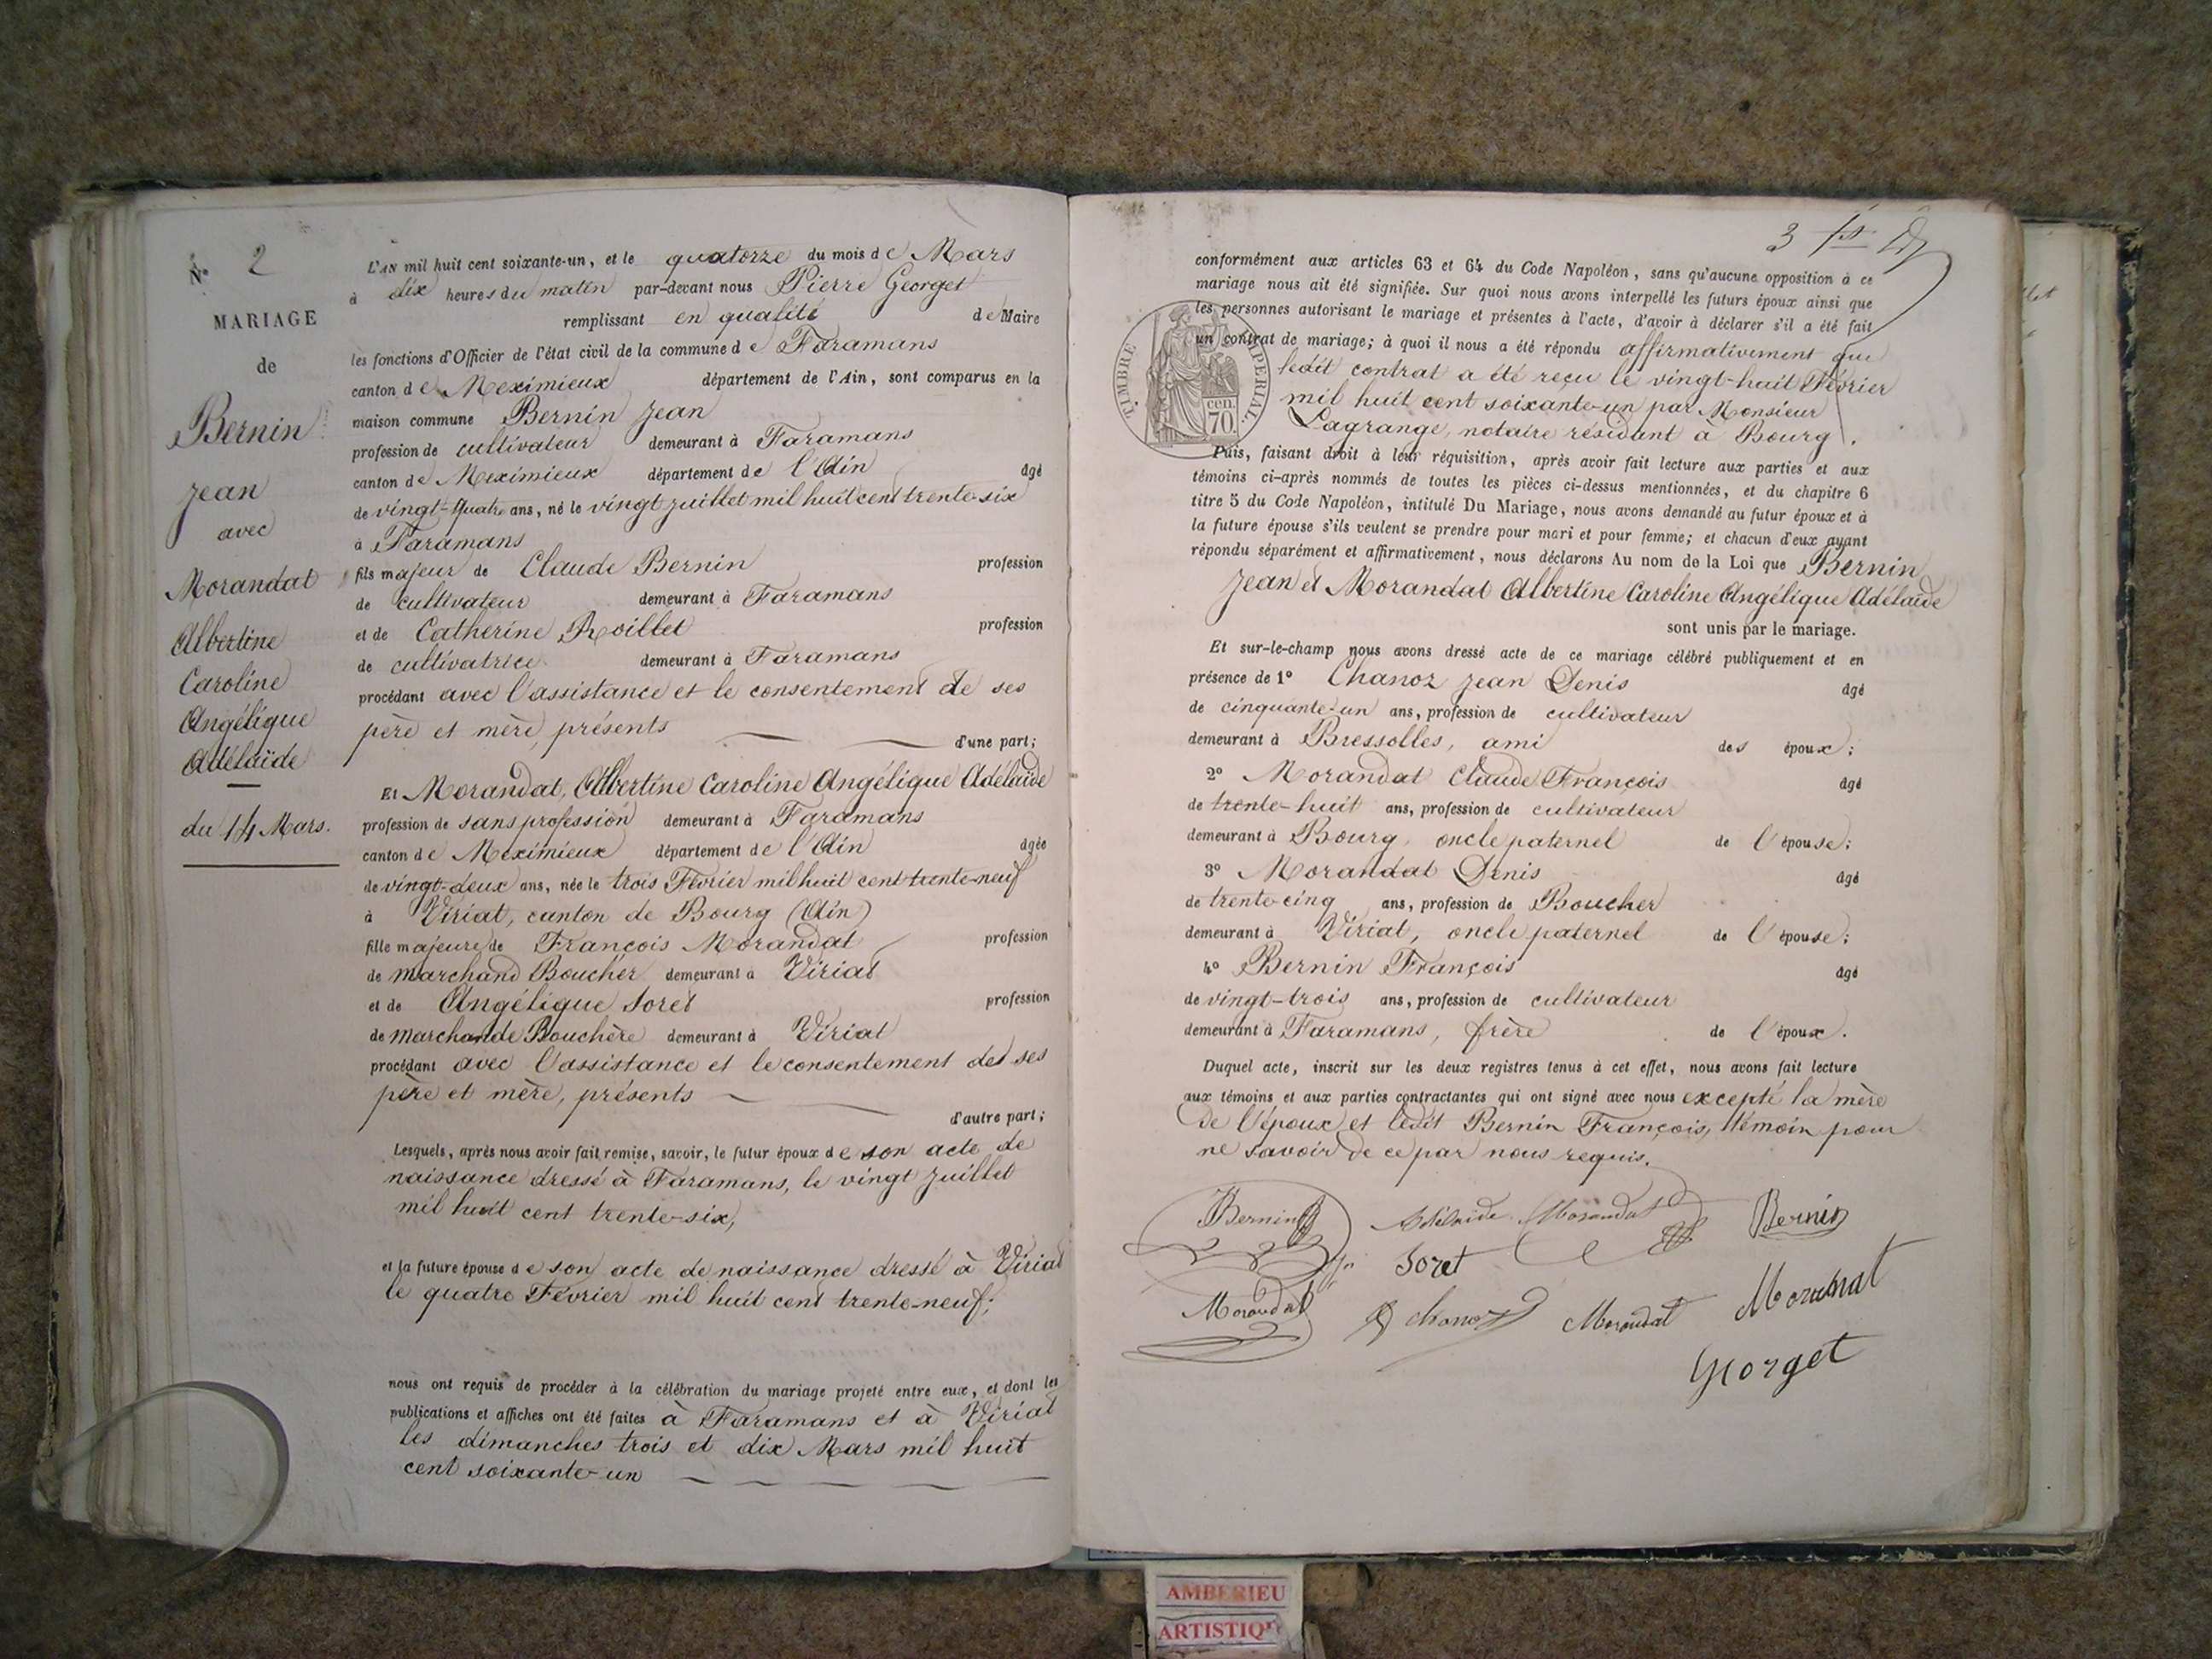 N° 2
MARIAGE
de
Bernin
Jean
avec
Morandat
Albertine
Caroline
Angélique
Adélaïde
du 14 Mars.
L'AN mil huit cent soixante-un, et le quatorze du mois de Mars
à dix heures du matin par-devant nous Pierre Georget
remplissant en qualité de Maire
les fonctions d'Officier de l'état civil de la commune de Faramans
canton de Meximieux département de l'Ain, sont comparus en la
maison commune Bernin Jean
profession de cultivateur demeurant à Faramans
canton de Meximieux département de l'Ain âgé
de vingt-quatre ans, né le vingt juillet mil huit cent trente-six
à Faramans
fils majeur de Claude Bernin profession
de cultivateur demeurant à Faramans
et de Catherine Roillet profession
de cultivatrice demeurant à Faramans
procédant avec l'assistance et le consentement de ses
père et mère, présents d'une part;
Et Morandat, Albertine Caroline Angélique Adélaïde
profession de sans profession demeurant à Faramans
canton de Meximieux département de l'Ain âgée
de vingt-deux ans, née le trois Février mil huit cent trente-neuf
à Viriat, canton de Bourg (Ain)
fille majeure de François Morandat profession
de marchand Boucher demeurant à Viriat
et de Angélique Soret profession
de marchande Bouchère demeurant à Viriat
procédant avec l'assistance et le consentement de ses
père et mère, présents
d'autre part;
Lesquels, après nous avoir fait remise, savoir, le futur époux de son acte de
naissance dressé à Faramans, le vingt juillet
mil huit cent trente-six,
et la future épouse de son acte de naissance dressé à Viriat
le quatre Février mil huit cent trente-neuf;
nous ont requis de procéder à la célébration du mariage projeté entre eux, et dont les
publications et affiches ont été faites à Faramans et à Viriat
les dimanches trois et dix Mars mil huit
cent soixante-un
3
conformément aux articles 63 et 64 du Code Napoléon, sans qu'aucune opposition à ce
mariage nous ait été signifiée. Sur quoi nous avons interpellé les futurs époux ainsi que
les personnes autorisant le mariage et présentes à l'acte, d'avoir à déclarer s'il a été fait
un contrat de mariage; à quoi il nous a été répondu affirmativement que
ledit contrat a été reçu le vingt-huit Février
mil huit cent soixante-un par Monsieur
Lagrange, notaire résidant à Bourg.
TIMBRE IMPERIAL.
cen.
70.
Puis, faisant droit à leur réquisition, après avoir fait lecture aux parties et aux
témoins ci-après nommés de toutes les pièces ci-dessus mentionnées, et du chapitre 6
titre 5 du Code Napoléon, intitulé Du Mariage, nous avons demandé au futur époux et à
la future épouse s'ils veulent se prendre pour mari et pour femme; et chacun d'eux ayant
répondu séparément et affirmativement, nous déclarons Au nom de la Loi que Bernin
Jean et Morandat Albertine Caroline Angélique Adélaïde
sont unis par le mariage.
Et sur-le-champ nous avons dressé acte de ce mariage célébré publiquement et en
présence de 1° Chanoz Jean Denis âgé
de cinquante-un ans, profession de cultivateur
demeurant à Bressolles, ami des époux;
2° Morandat Claude François âgé
de trente-huit ans, profession de cultivateur
demeurant à Bourg, oncle paternel de l'épouse;
3° Morandat Denis âgé
de trente-cinq ans, profession de Boucher
demeurant à Viriat, oncle paternel de l'épouse;
4° Bernin François âgé
de vingt-trois ans, profession de cultivateur
demeurant à Faramans, frère de l'époux.
Duquel acte, inscrit sur les deux registres tenus à cet effet, nous avons fait lecture
aux témoins et aux parties contractantes qui ont signé avec nous excepté la mère
de l'époux et ledit Bernin François, témoin pour
ne savoir de ce par nous requis.
Bernin Adélaide Morandat Bernin
Soret
Morandat Chanoz Morandat Morandat
Georget
AMBERIEU
ARTISTIQ